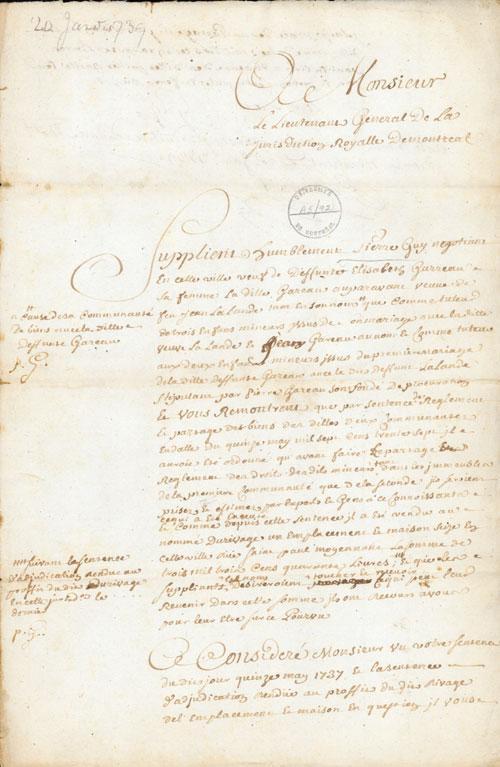 22 Janvr 1739
A Monsieur
Le Lieutenant General De La
Jurisdiction Royalle De Montreal
A5/92
Supplient humblement Pierre Guy negotiant
En cette ville veuf de Deffunte Elisabeth Garreau
Sa femme La ditte Gareau auparavant veuve de
feu Jean La Lande tant en son nom que Comme tuteur
de trois enfans mineurs issus de mariage avec la ditte
veuve La Lande Et Jean Gareau au nom et Comme tuteur
aux deux Enfans mineurs issus du premier mariage
de la ditte deffunte Gareau avec le dit deffunt La Lande
Stipulant par Pierre Gareau son fondé de procuration
Et Vous Remontrent que par sentence Reglement
le partage des biens des dittes deux Communautés
en datte du quinze may mil sept Cens trente sept il
auroit été ordonné qu'avant faire Le partage Et
Reglement des droits des dits mineurs dans les immeubles
de la premiere Communauté que de la seconde ils seroient
prisez et estimez par Experts et Gens a ce Connoissants
ce qui a été
et Comme depuis cette sentence il a été vendu au
nommé Durivage un emplacement et maison size en
cette ville ruë Saint paul moyennant la somme de
trois mil trois Cens quarante Livres et que les
supliants desireroient toucher et recevoir ce qui peut leur
Revenir dans cette somme ils ont Recours a vous
pour leur être sur ce Pourvu
Ce Consideré Monsieur Vu votre sentence
du dit jour quinze may 1737 et la sentence
d'adjudication rendüe au proffit du dit Rivage
de l'emplacement et maison en question il vous
a cause de sa Communauté
de biens avec la ditte
deffunte Gareau
P. G.
suivant la sentence
d'adjudication rendue au
proffit du dit Durivage
En cette jurisd. le
dernier
P. G.